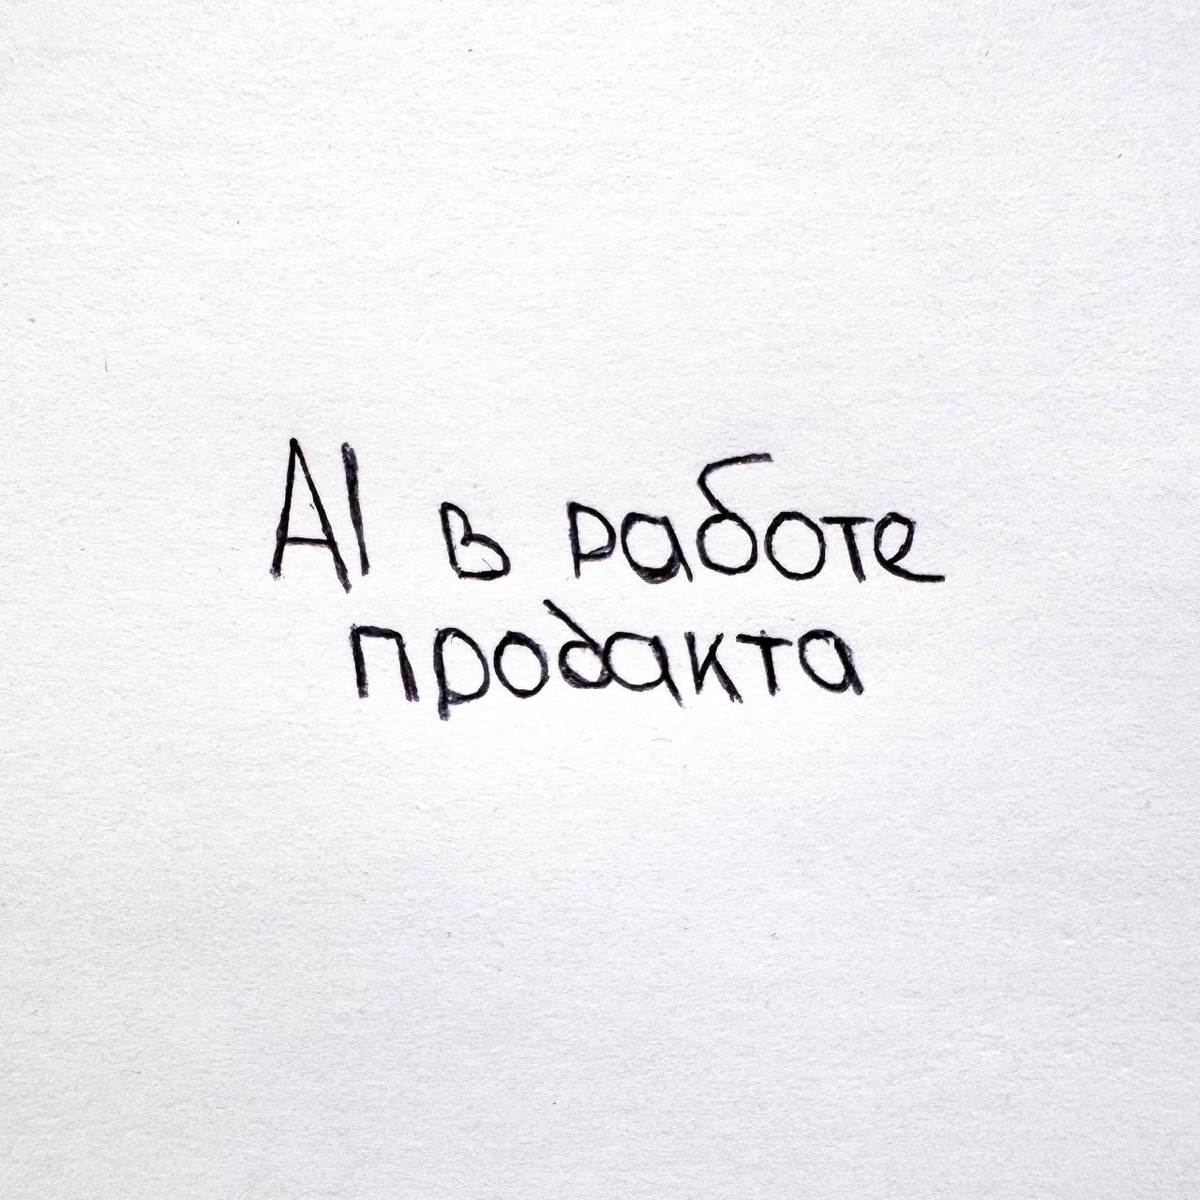 AI в работе
продакта